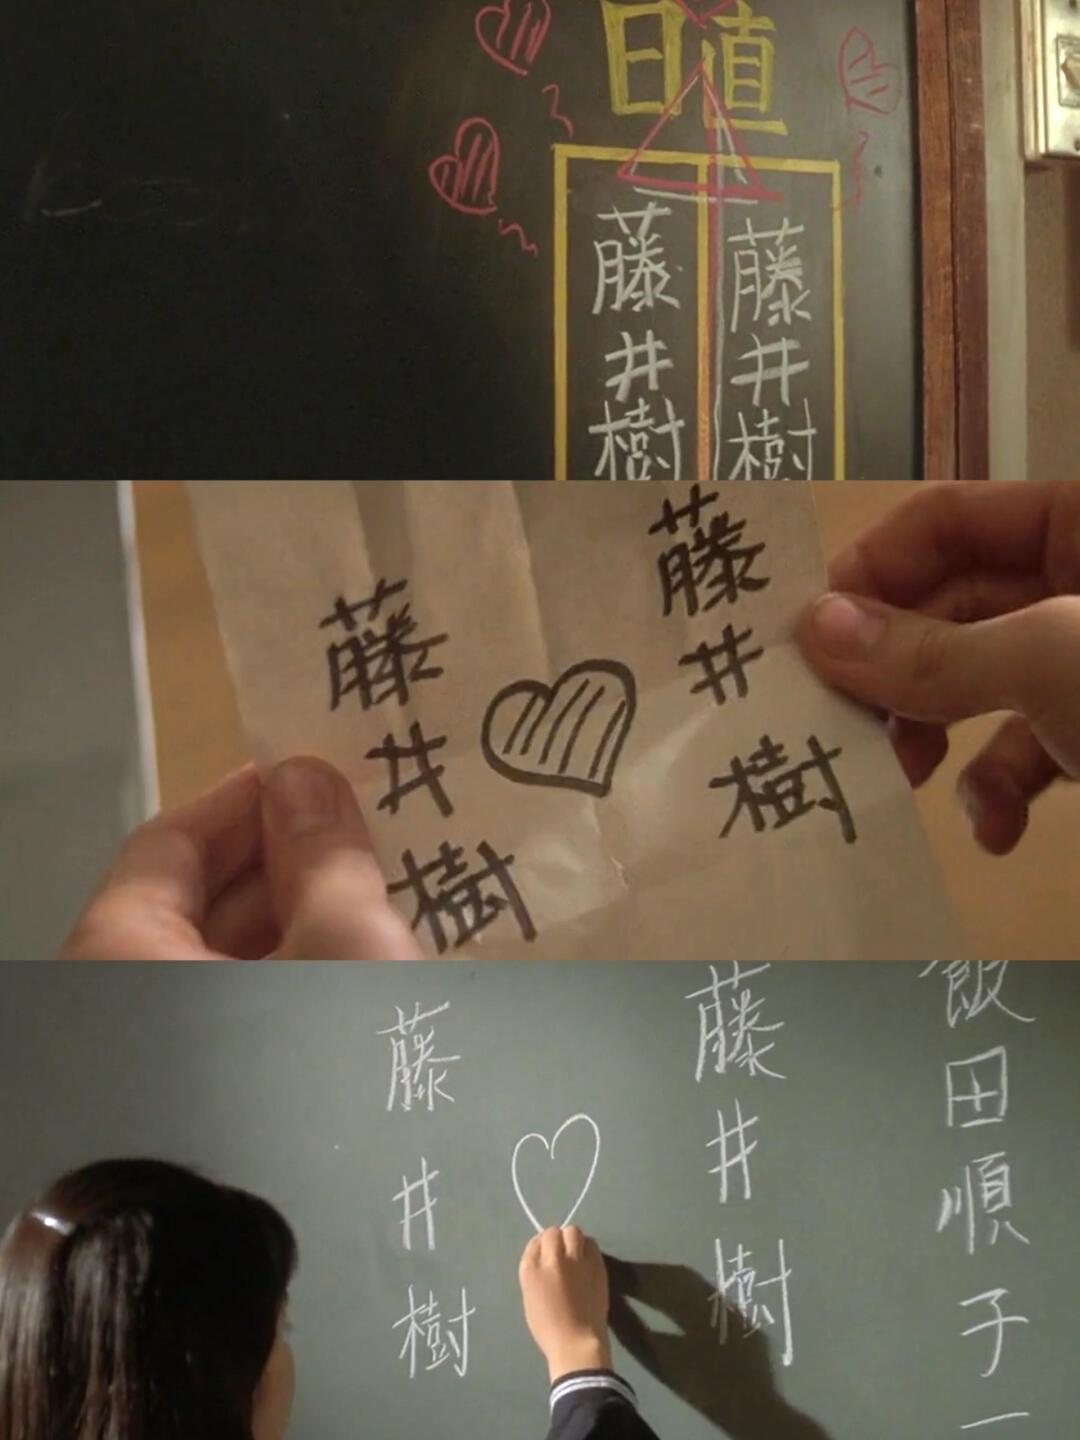 日直
藤井樹
藤井樹
藤井樹
藤井樹
飯田順子一
藤井樹
藤井樹